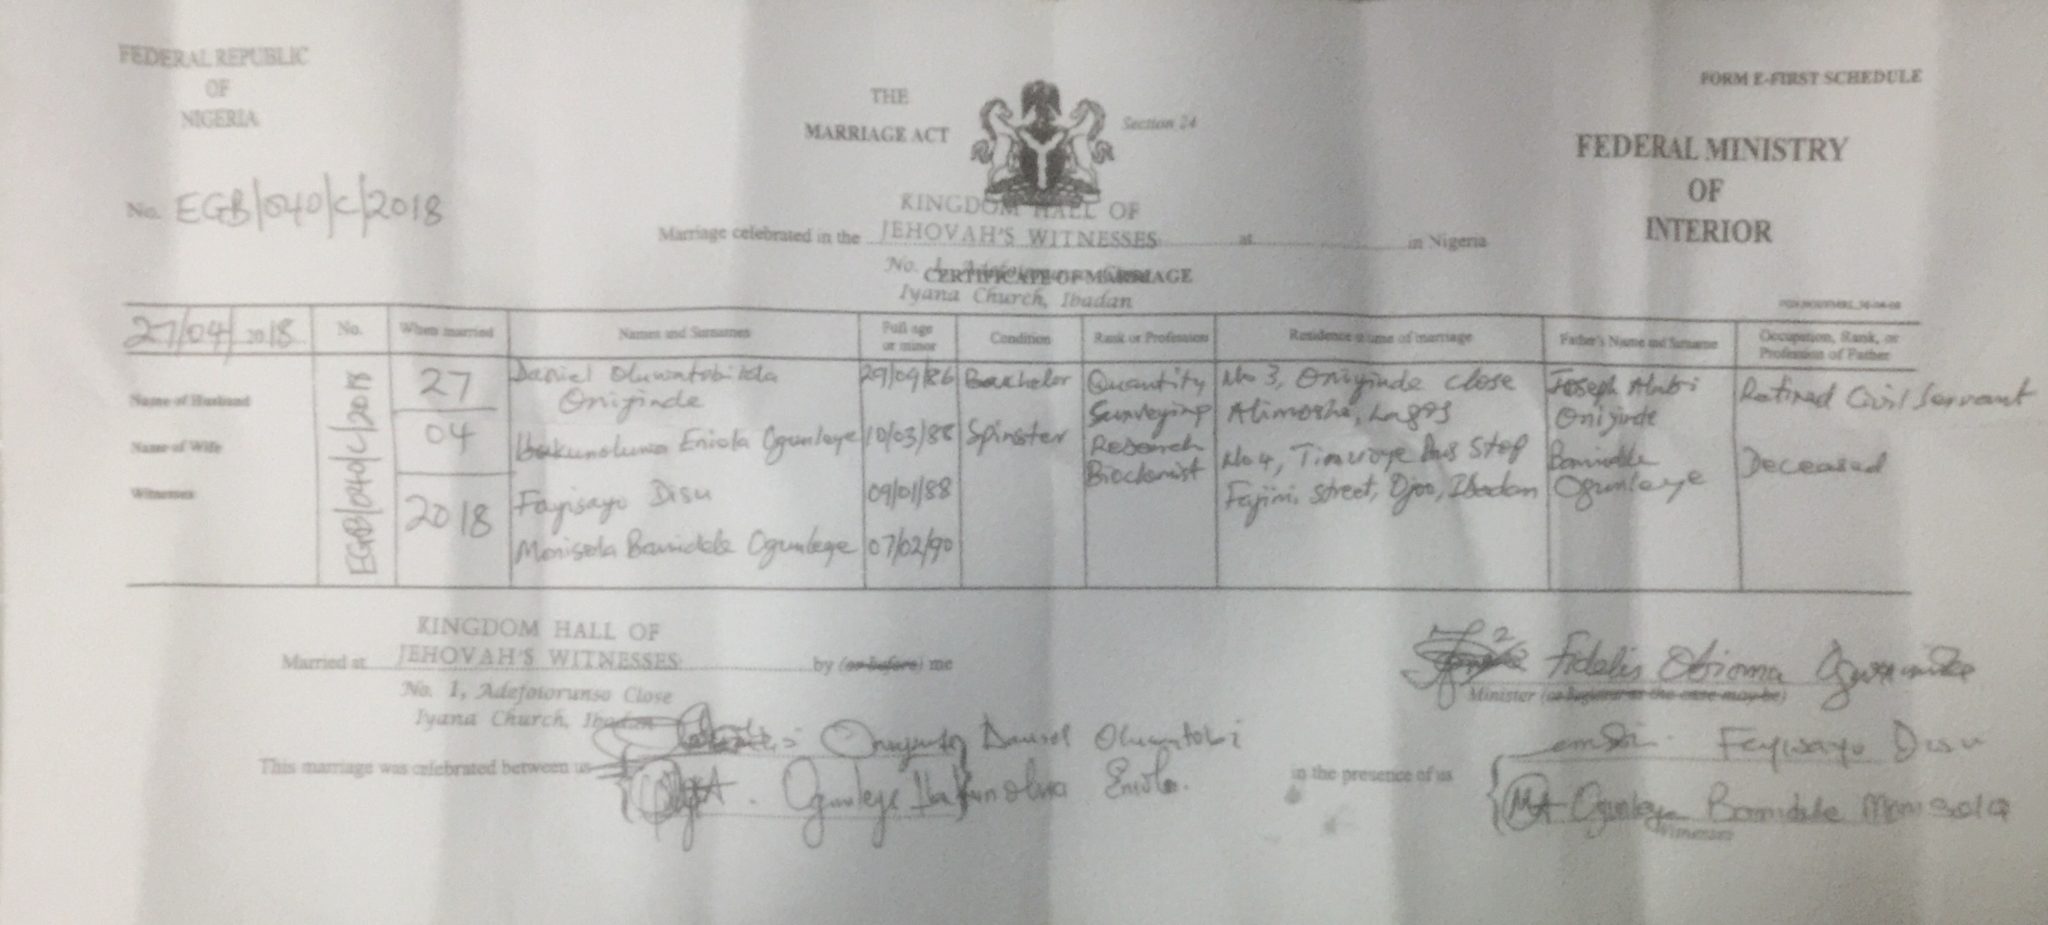 FEDERAL REPUBLIC
OF
NIGERIA
No. EGB/040/C/2018
THE
MARRIAGE ACT
Section 24
FORM E-FIRST SCHEDULE
FEDERAL MINISTRY
OF
INTERIOR
KINGDOM HALL OF
Marriage celebrated in the JEHOVAH'S WITNESSES at in Nigeria
No. 1,
CERTIFICATE OF MARRIAGE
Iyana Church, Ibadan
27/04/2018 No. When married Names and Surnames Full age or minor Condition Rank or Profession Residence at time of marriage Father's Name and Surname Occupation, Rank, or Profession of Father
Name of Husband EGB/040/C/2018 27 Daniel Oluwatobiloba Oniginde 29/09/86 Bachelor Quantity Surveying No 3, Oniginde Close Alimosho, Lagos Joseph Alabi Oniginde Retired Civil Servant
Name of Wife 04 Ibukunoluwa Eniola Ogunleye 10/03/88 Spinster Research Biochemist No 4, Bus Stop Street, Ojoo, Ibadan Bamidele Ogunleye Deceased
Witnesses 2018 Fayisayo Disu 09/01/88
Monisola Bamidele Ogunleye 07/02/90
KINGDOM HALL OF
Married at JEHOVAH'S WITNESSES by (or before) me
No. 1, Adefotorunso Close
Iyana Church, Ibadan
Fidelis Obioma
Minister (or Registrar as the case may be)
Daniel Oluwatobi
This marriage was celebrated between us
Ogunleye Ibukunoluwa Eniola.
in the presence of us
Fayisayo Disu
Ogunleye Bamidele Monisola
Witnesses